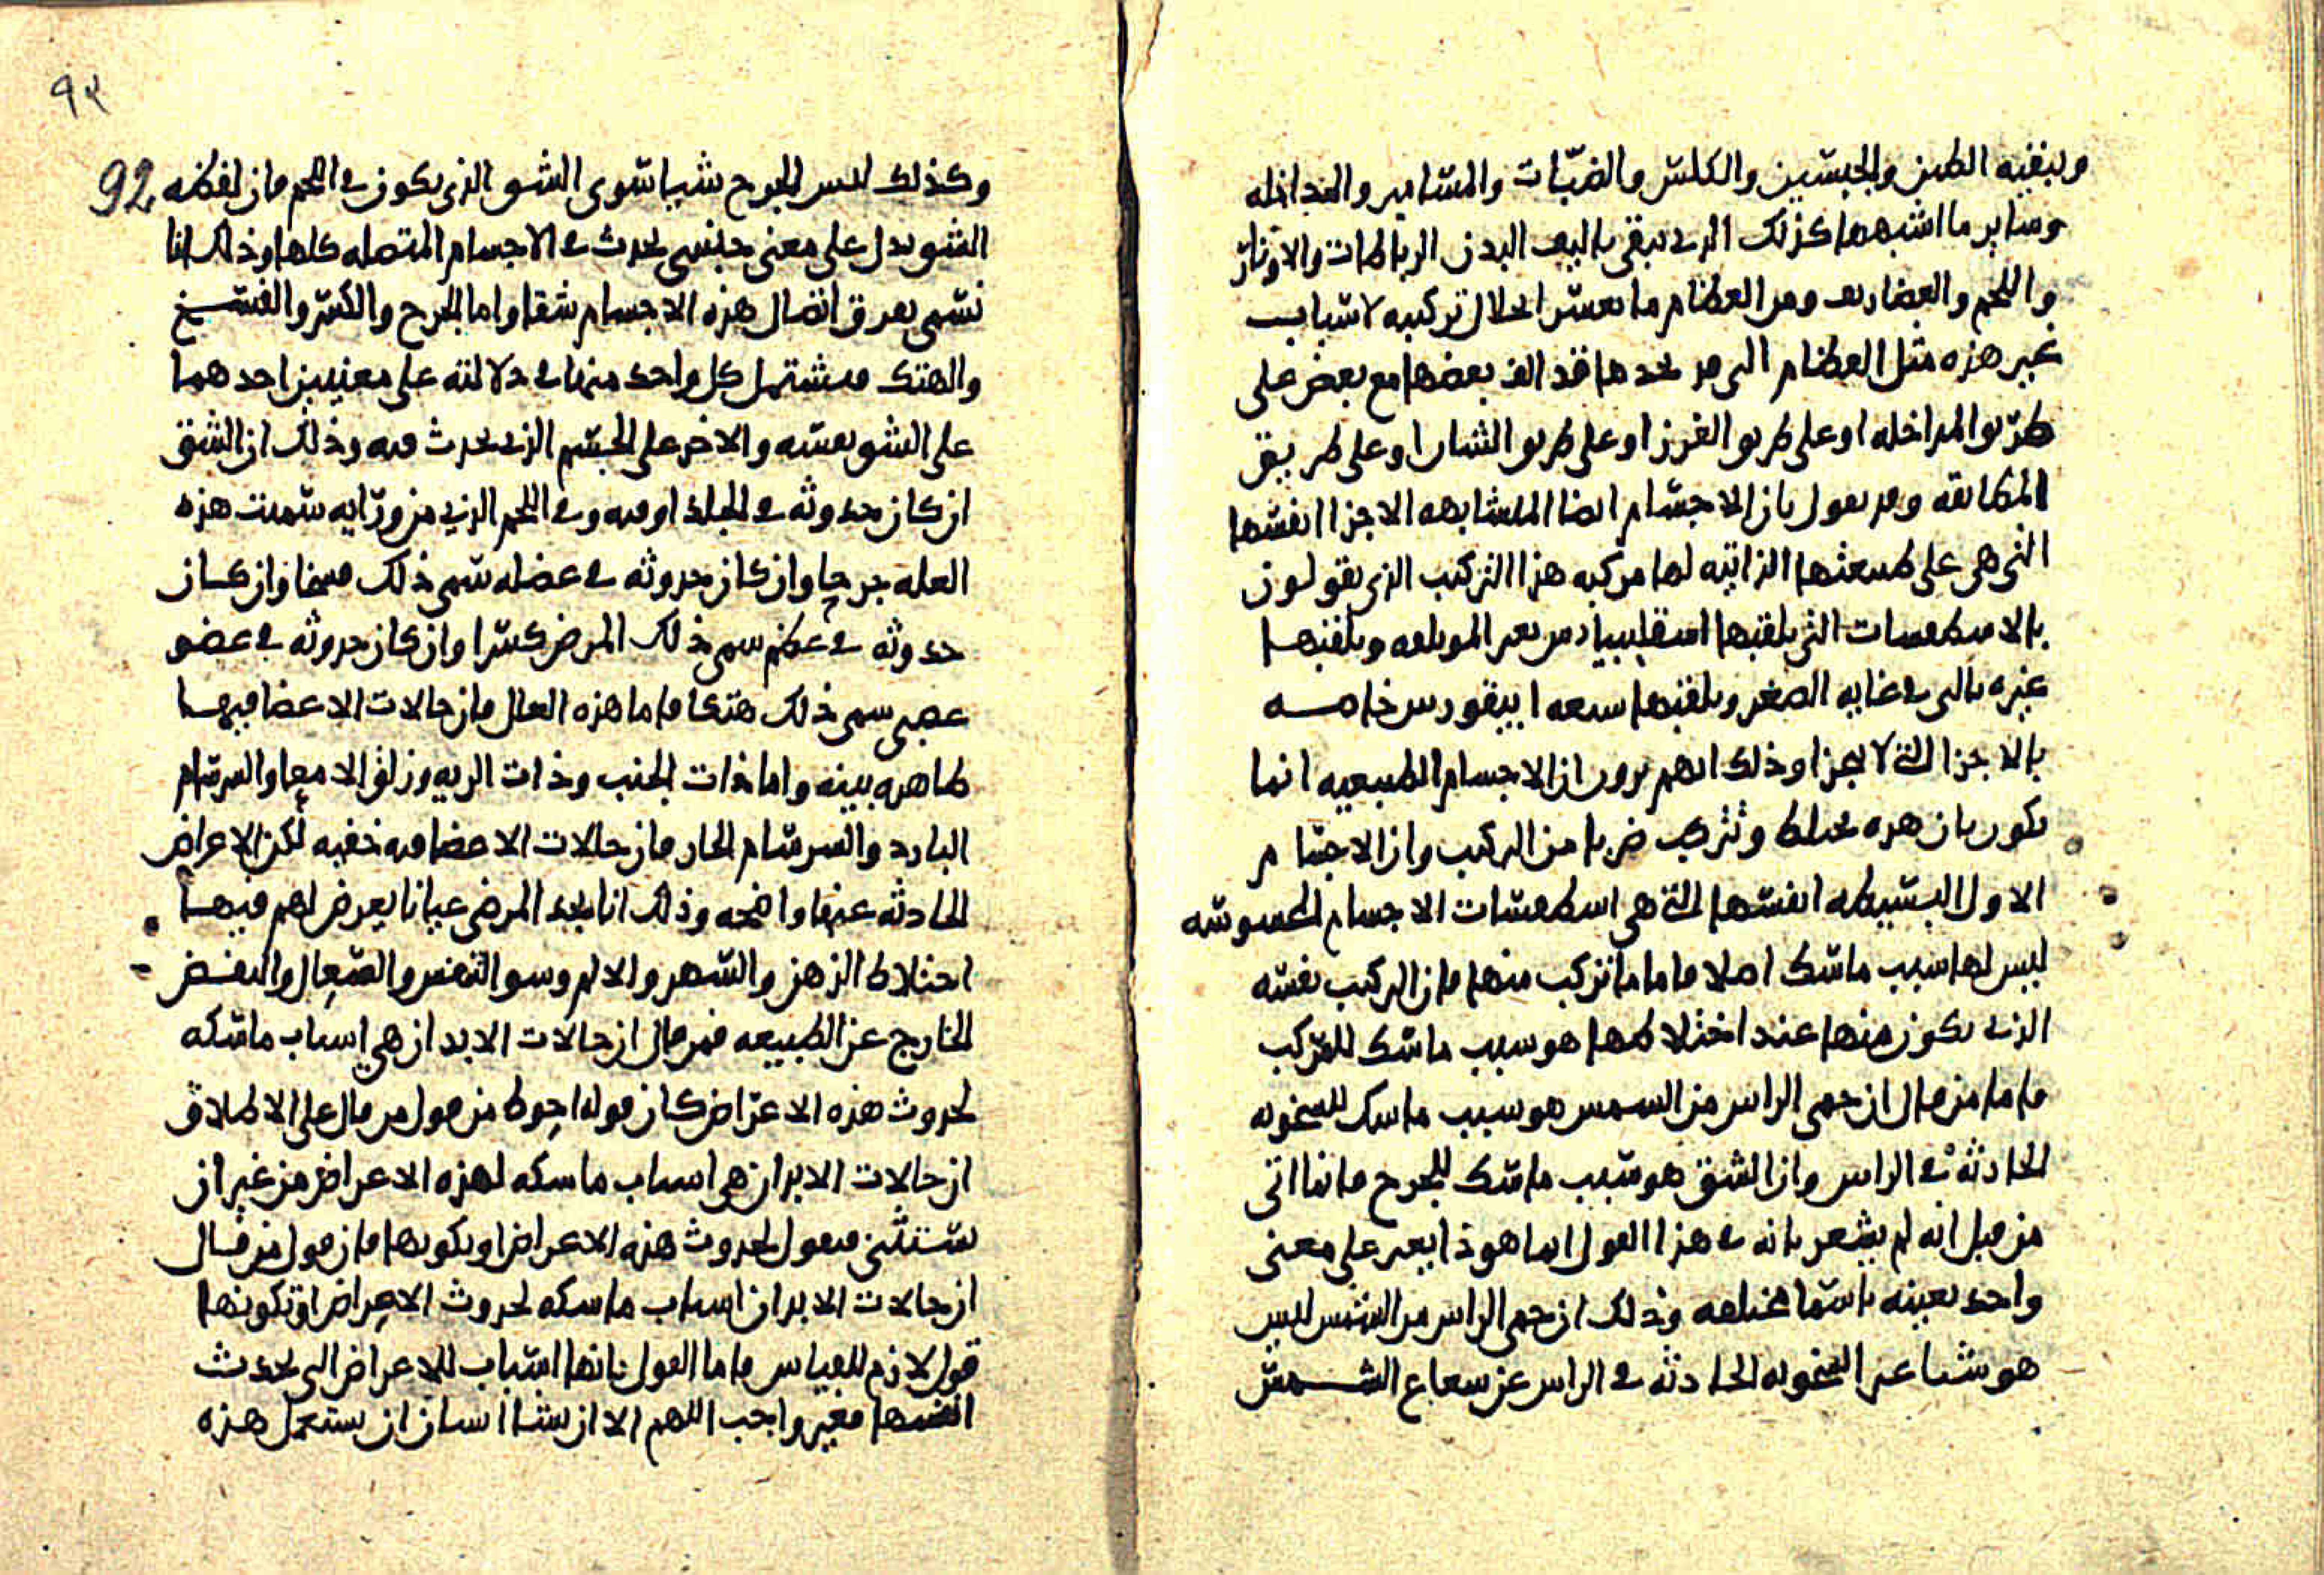 ويبقيه الطين والجبسين والكلس والضبات والمسامير والمداخله
وساير ما اشبهها كذلك الذي يبقي تاليف البدن الرباطات والاوتار
واللحم والغضاريف ومن العظام ما يعسر انحلال تركيبه لاسباب
غير هذه مثل العظام التي قد نجدها قد الف بعضها مع بعض على
طريق المداخله او على طريق الغرز او على طريق الشان او على طريق
المطابقه وقد يقول بان الاجسام ايضا المتشابهه الاجزا انفسها
التي هي على طبيعتها الذاتيه لها مركبه هذا التركيب الذين يقولون
بالاسطقسات التي يلقبها اسقلبيادس بغير المولفه ويلقبها
غيره بالتي في غايه الصغر ويلقبها شيعه ابيقورس خاصه
بالاجزا التي لا تتجزا وذلك انهم يرون ان الاجسام الطبيعيه انما
تكون بان هذه تختلط وتتركب ضربا من التركيب وان الاجسام
الاول البسيطه انفسها التي هي اسطقسات الاجسام المحسوسه
ليس لها سبب ماسك اصلا فاما ما تركب منها فان التركيب نفسه
الذي يكون منها عند اختلاطها هو سبب ماسك للمركب
فاما من قال ان حمى الراس من الشمس هو سبب ماسك للسخونه
الحادثه في الراس وان الشق هو سبب ماسك للجرح فانما اتى
من قبل انه لم يشعر بانه في هذا القول انما هو ذا يعبر على معنى
واحد بعينه باسما مختلفه وذلك ان حمى الراس من الشمس ليس
هو شيا غير السخونه الحادثه في الراس عن شعاع الشمس
٩٢
92
وكذلك ليس الجرح شيا سوى الشق الذي يكون في اللحم فان لفظه
الشق يدل على معنى جنسي يحدث في الاجسام المتصله كلها وذلك انا
نسمي تفرق اتصال هذه الاجسام شقا واما الجرح والكسر والفسخ
والهتك فيشتمل كل واحد منها في دلالته على معنيين احدهما
على الشق نفسه والاخر على الجسم الذي يحدث فيه وذلك ان الشق
ان كان حدوثه في الجلد او فيه وفي اللحم الذي من ورايه سميت هذه
العله جرحا وان كان حدوثه في عضله سمي ذلك فسخا وان كان
حدوثه في عظم سمي ذلك المرض كسرا وان كان حدوثه في عضو
عصبي سمي ذلك هتكا فاما هذه العلل فان حالات الاعضا فيها
ظاهره بينه واما ذات الجنب وذات الريه وزلق الامعا والسرسام
البارد والسرسام الحار فان حالات الاعضا فيه خفيه لكن الاعراض
الحادثه عنها واضحه وذلك انا نجد المرضى عيانا يعرض لهم فيها
اختلاط الذهن والسهر والالم وسو التنفس والسعال والنفض
الخارج عن الطبيعه فمن قال ان حالات الابدان هي اسباب ماسكه
لحدوث هذه الاعراض كان قوله احوط من قول من قال على الاطلاق
ان حالات الابدان هي اسباب ماسكه لهذه الاعراض من غير ان
يستثني فيقول لحدوث هذه الاعراض او تكونها فان قول من قال
ان حالات الابدان اسباب ماسكه لحدوث الاعراض او تكونها
قول لازم للقياس فاما القول بانها اسباب للاعراض التي تحدث
انفسها فغير واجب اللهم الا ان يشا انسان ان يستعمل هذه